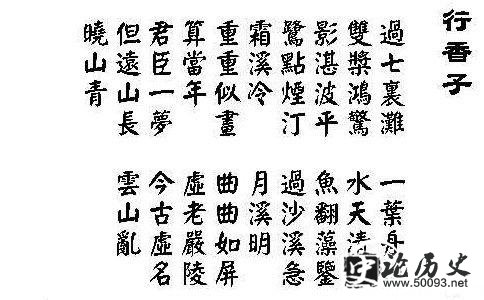 行香子
過七裏灘 一葉舟
雙槳鴻驚 水天清
影湛波平 魚翻藻鑒
鷺點煙汀 過沙溪急
霜溪冷 月溪明
重重似畫 曲曲如屏
算當年 虛老嚴陵
君臣一夢 今古虛名
但遠山長 雲山亂
曉山青
论历史
www.50093.net